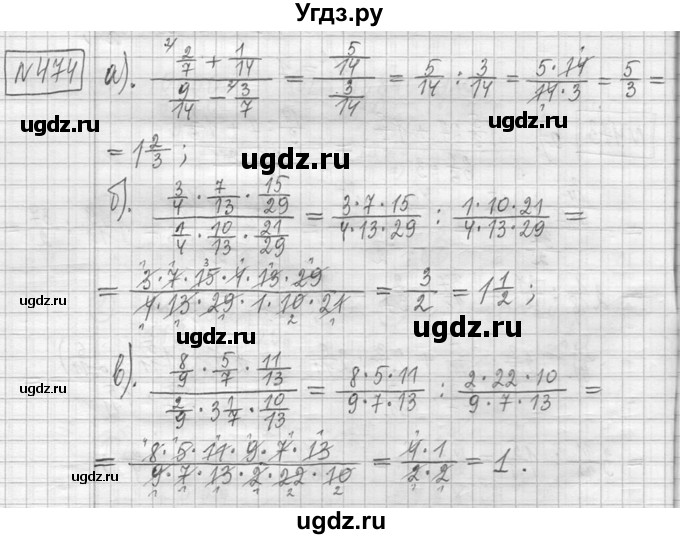 Угдз.ру
№474 а). (2/7 + 1/14)/(9/14 − 3/7) = (5/14)/(3/14) = 5/14 : 3/14 = (5·14)/(14·3) = 5/3 =
ugdz.ru ugdz.ru ugdz.ru
= 1 2/3 ;
ugdz.ru ugdz.ru
б). (3/4 · 7/13 · 15/29)/(1/4 · 10/13 · 21/29) = (3·7·15)/(4·13·29) : (1·10·21)/(4·13·29) =
ugdz.ru
= (3·7·15·4·13·29)/(4·13·29·1·10·21) = 3/2 = 1 1/2 ;
ugdz.ru ugdz.ru
в). (8/9 · 5/7 · 11/13)/(2/9 · 3 1/7 · 10/13) = (8·5·11)/(9·7·13) : (2·22·10)/(9·7·13) =
ugdz.ru ugdz.ru ugdz.ru
= (8·5·11·9·7·13)/(9·7·13·2·22·10) = (4·1)/(2·2) = 1 .
ugdz.ru ugdz.ru
ugdz.ru